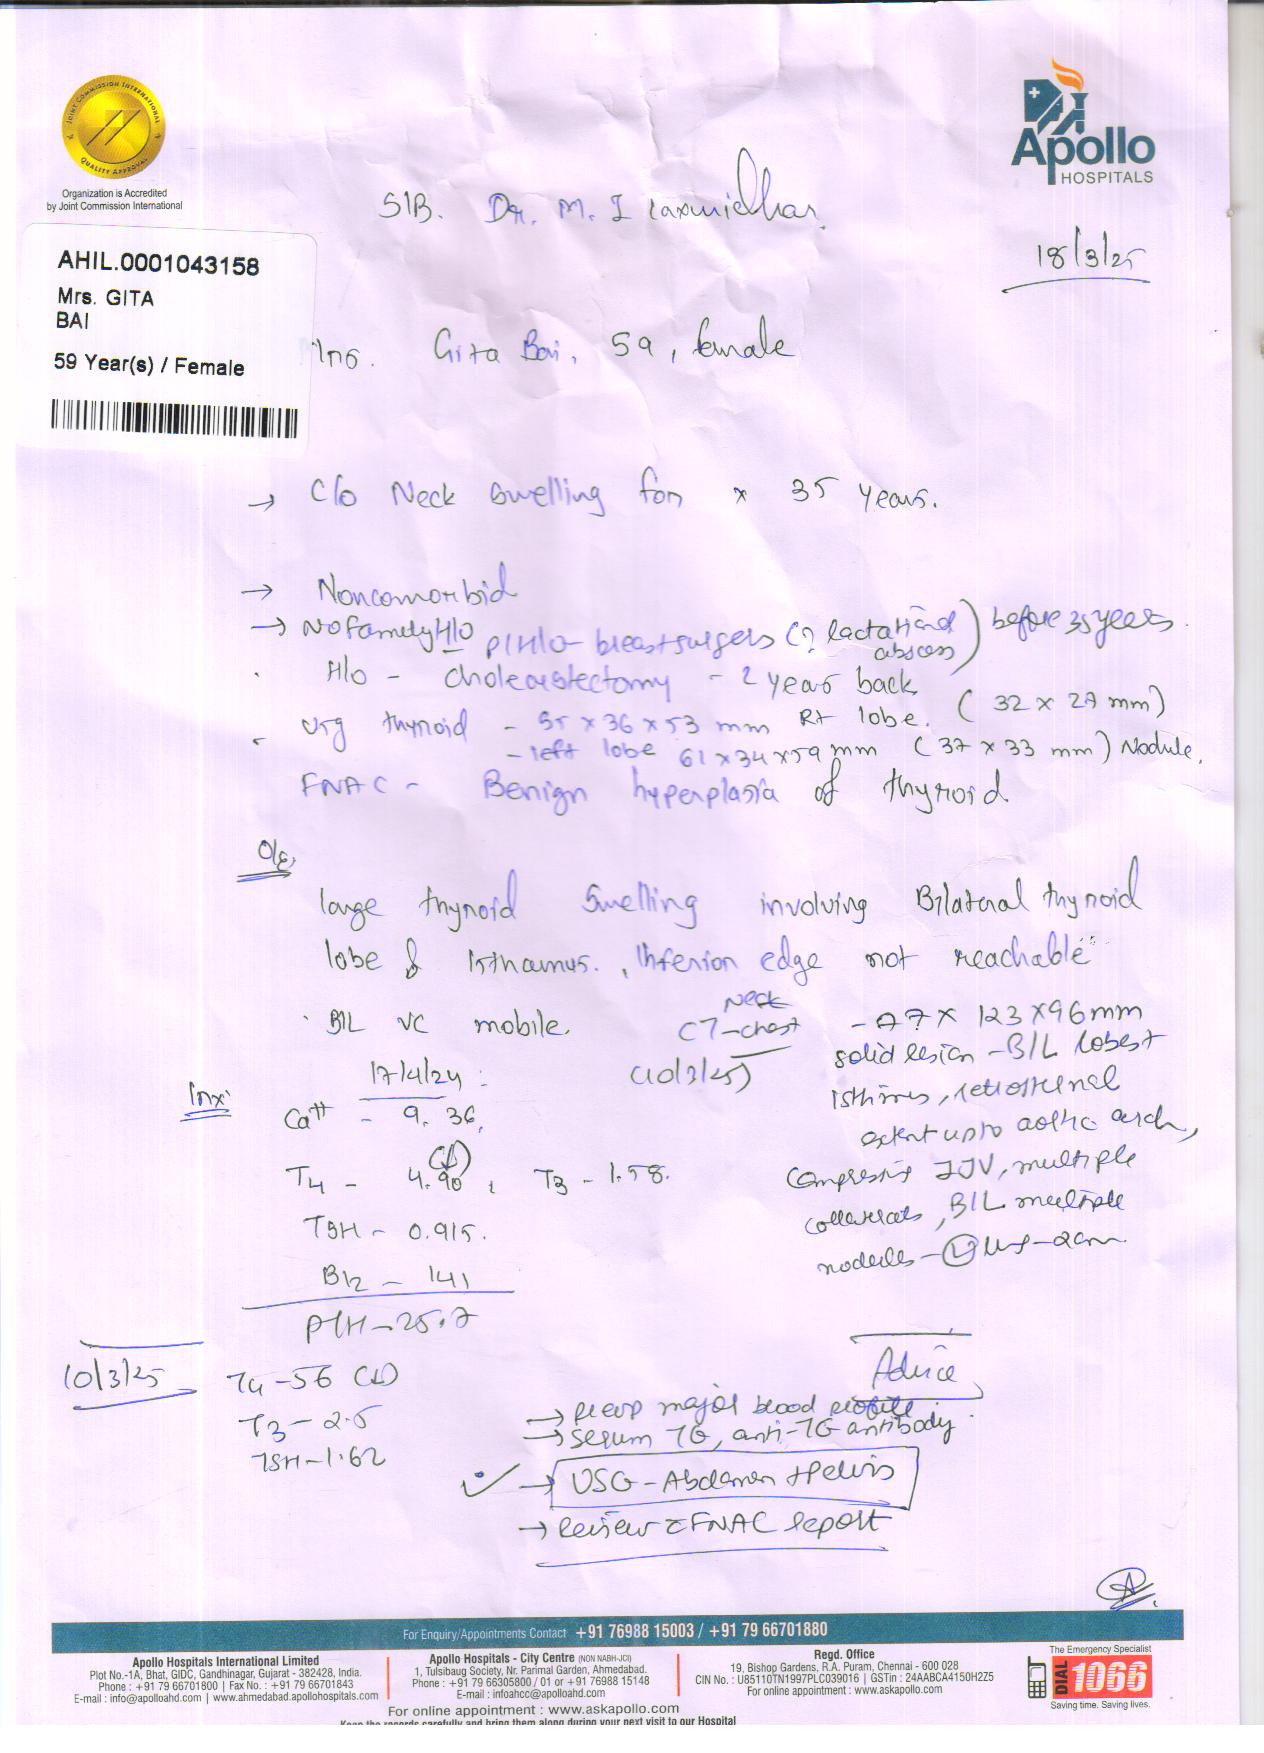 JOINT COMMISSION INTERNATIONAL
QUALITY APPROVAL
Organization is Accredited
by Joint Commission International
Apollo
HOSPITALS
S/B. Dr. M. I Laxmidhar
18/3/25
AHIL.0001043158
Mrs. GITA
BAI
59 Year(s) / Female
Mrs. Gita Bai, 59, female
→ C/o Neck swelling for x 35 years.
→ Noncomorbid
→ No Family H/o P/H/o - breast surgery (? lactational abscess) before 35 years.
H/o - cholecystectomy - 2 years back
Usg thyroid - 55 x 36 x 53 mm Rt lobe. (32 x 27 mm)
- left lobe 61 x 34 x 59 mm (37 x 33 mm) Nodule.
FNAC - Benign hyperplasia of thyroid
O/E
large thyroid swelling involving Bilateral thyroid
lobe & Isthamus. , Inferior edge not reachable
B/L VC mobile.
Neck
CT-chest
(10/3/25)
- 77 x 123 x 96 mm
solid lesion - B/L lobes +
isthmus, retrosternal
extent upto aortic arch,
compressing IJV, multiple
collaterals, B/L multiple
nodules - 2cm
Inx
17/4/24 :
Ca++ - 9.36,
T4 - 4.90 (L), T3 - 1.58.
TSH - 0.915.
B12 - 141
PTH - 25.7
10/3/25
T4 - 56 (L)
T3 - 2.5
TSH - 1.62
Advice
→ preop major blood profile
→ serum TG, anti-TG antibody
✓ → USG - Abdomen + Pelvis
→ Review c FNAC report
For Enquiry/Appointments Contact +91 76988 15003 / +91 79 66701880
Apollo Hospitals International Limited
Plot No.-1A, Bhat, GIDC, Gandhinagar, Gujarat - 382428, India.
Phone : +91 79 66701800 | Fax No. : +91 79 66701843
E-mail : info@apolloahd.com | www.ahmedabad.apollohospitals.com
Apollo Hospitals - City Centre (NON NABH-JCI)
1, Tulsibaug Society, Nr. Parimal Garden, Ahmedabad.
Phone : +91 79 66305800 / 01 or +91 76988 15148
E-mail : infoahcc@apolloahd.com
Regd. Office
19, Bishop Gardens, R.A. Puram, Chennai - 600 028
CIN No. : U85110TN1997PLC039016 | GSTin : 24AABCA4150H2Z5
For online appointment : www.askapollo.com
The Emergency Specialist
DIAL 1066
Saving time. Saving lives.
For online appointment : www.askapollo.com
Keep the records carefully and bring them along during your next visit to our Hospital